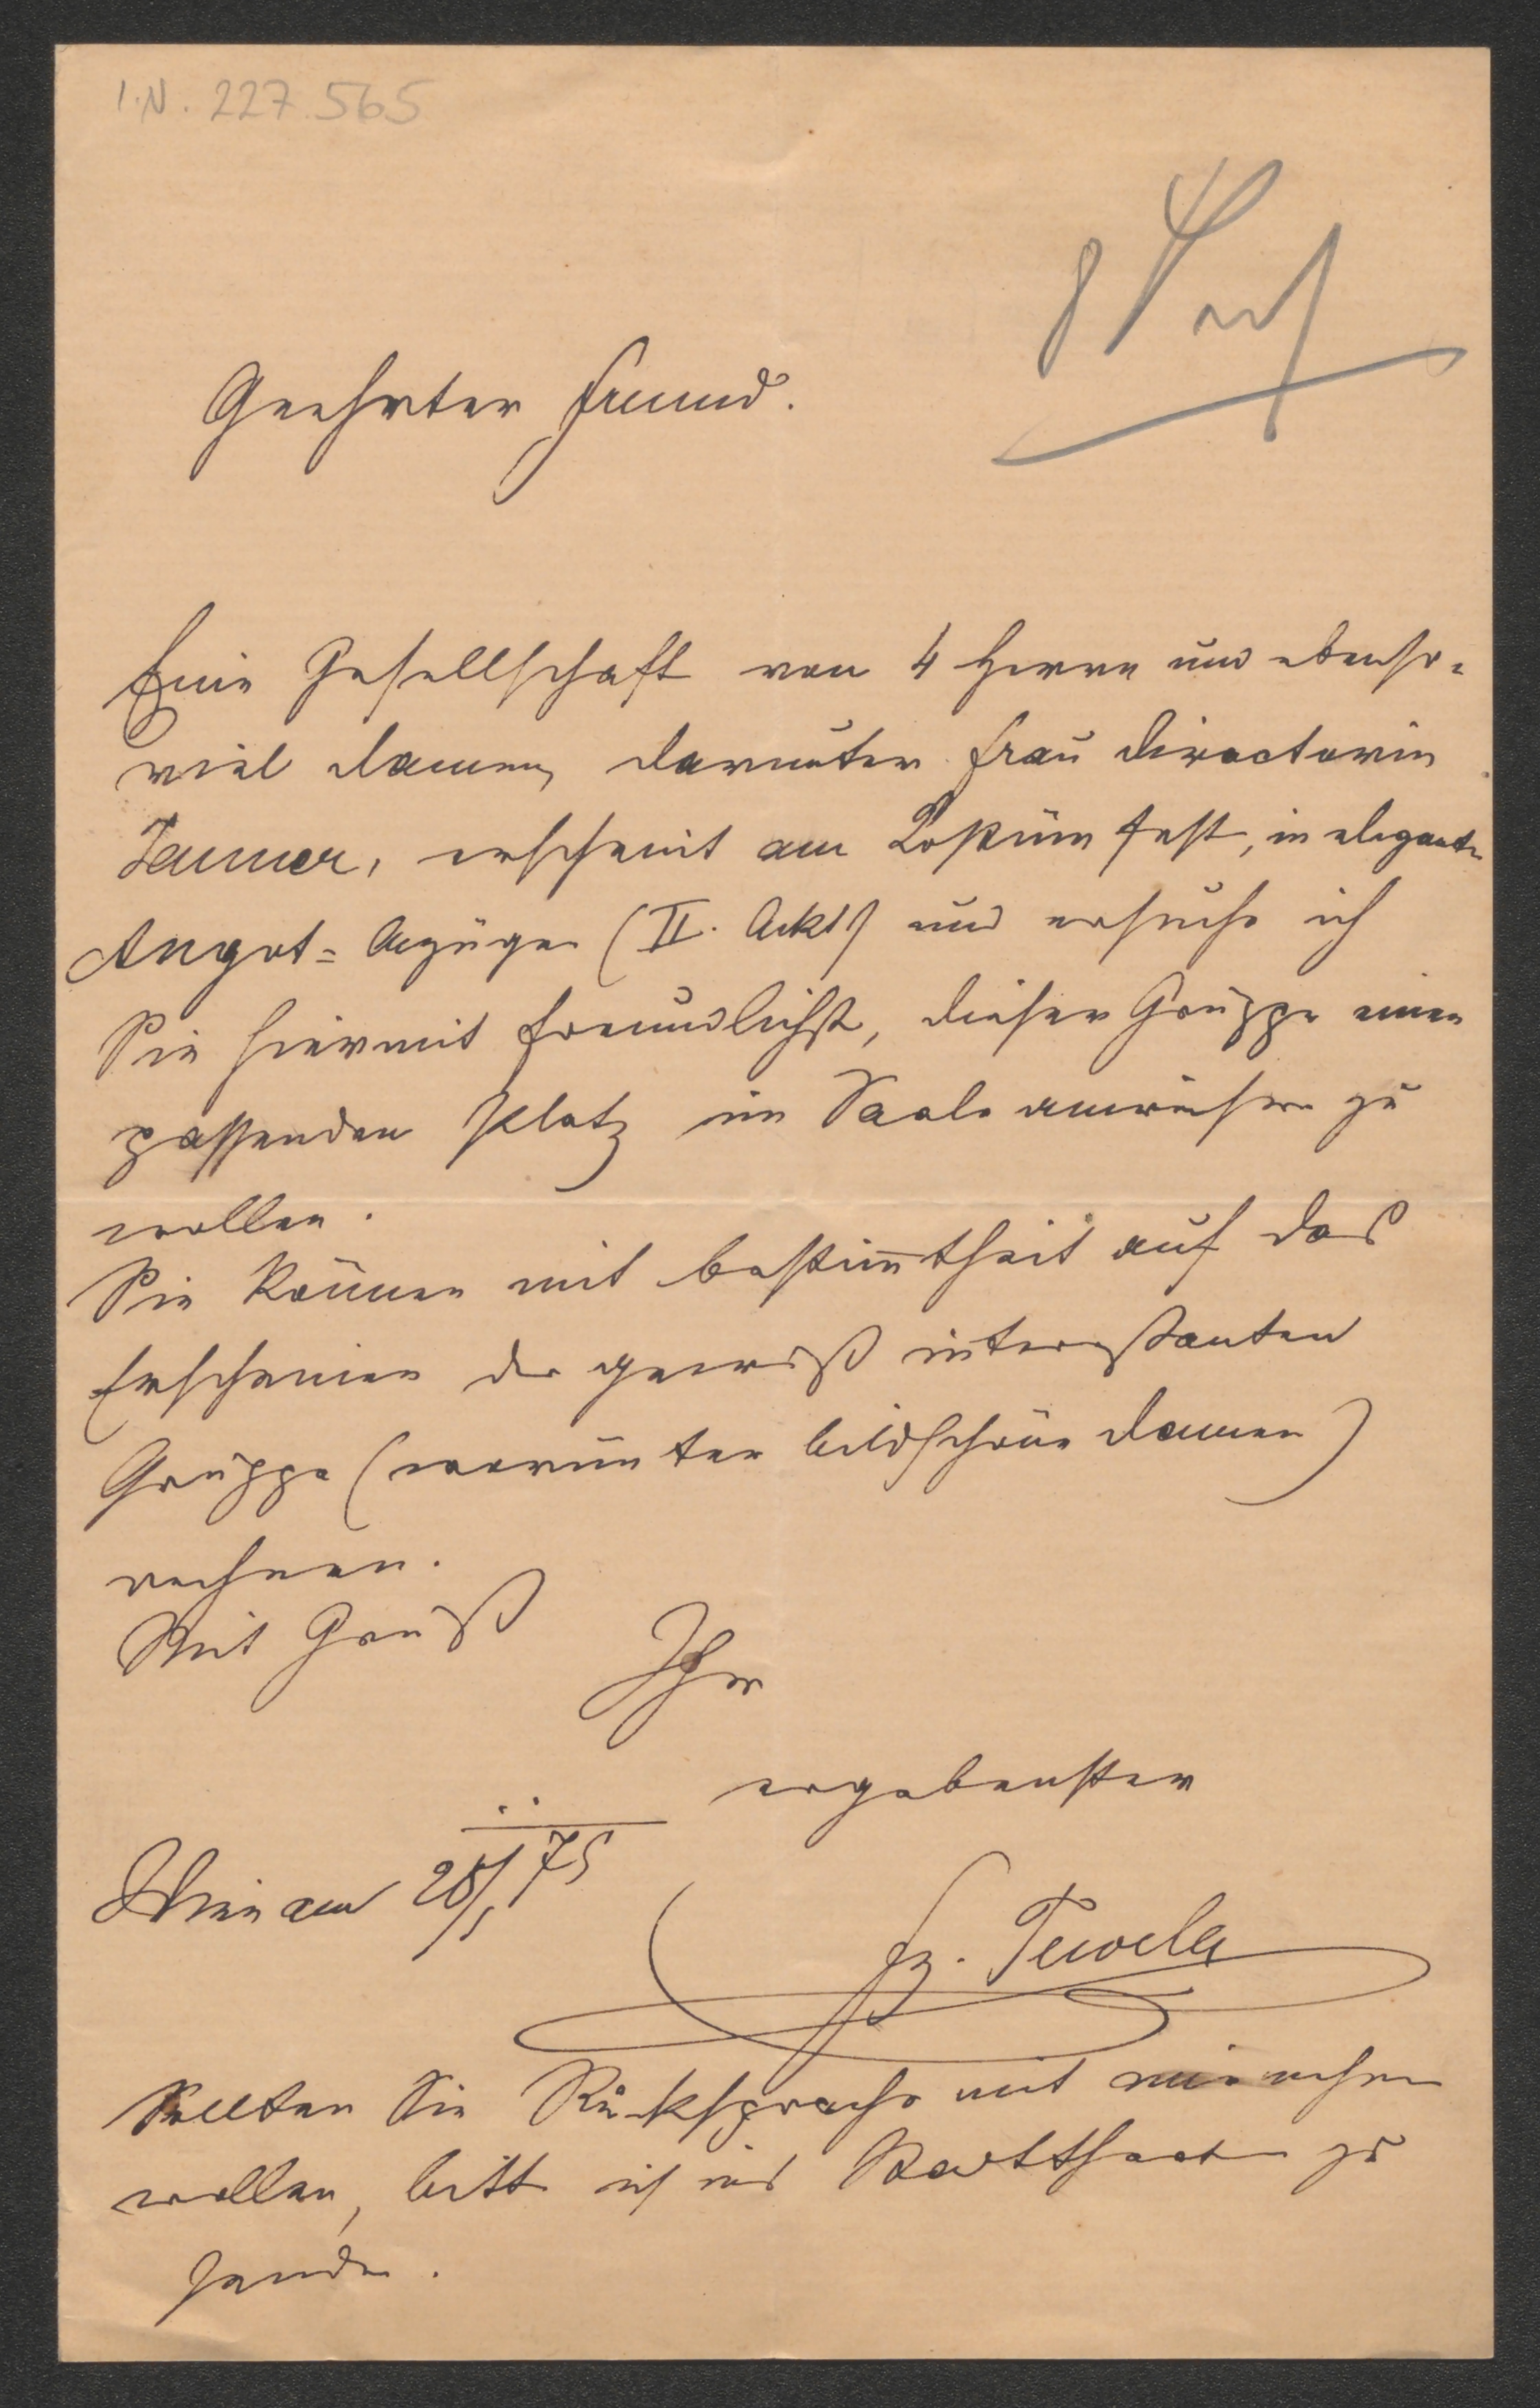 I.N. 227.565
Geehrter Freund.
Eine Gesellschaft von 4 Herrn und ebenso=
viel Damen, darunter Frau Directorin
Jauner, erscheint am Kostüm Fest, in elegante
Angot=Anzüge (II. Ackt) und ersuche ich
Sie hiermit freundlichst, dieser Gruppe einen
passenden Platz im Saale anweisen zu
wollen.
Sie können mit bestim̄theit auf das
Erscheinen der gewiß interessanten
Gruppe (worunter bildschöne Damen)
rechnen.
Mit Gruß
Ihr
ergebenster
Wien am 28/1 75
Fz. Tewele
Sollten Sie Rücksprache mit mir nehmen
wollen, bitte ich ins Stadttheater zu
senden.